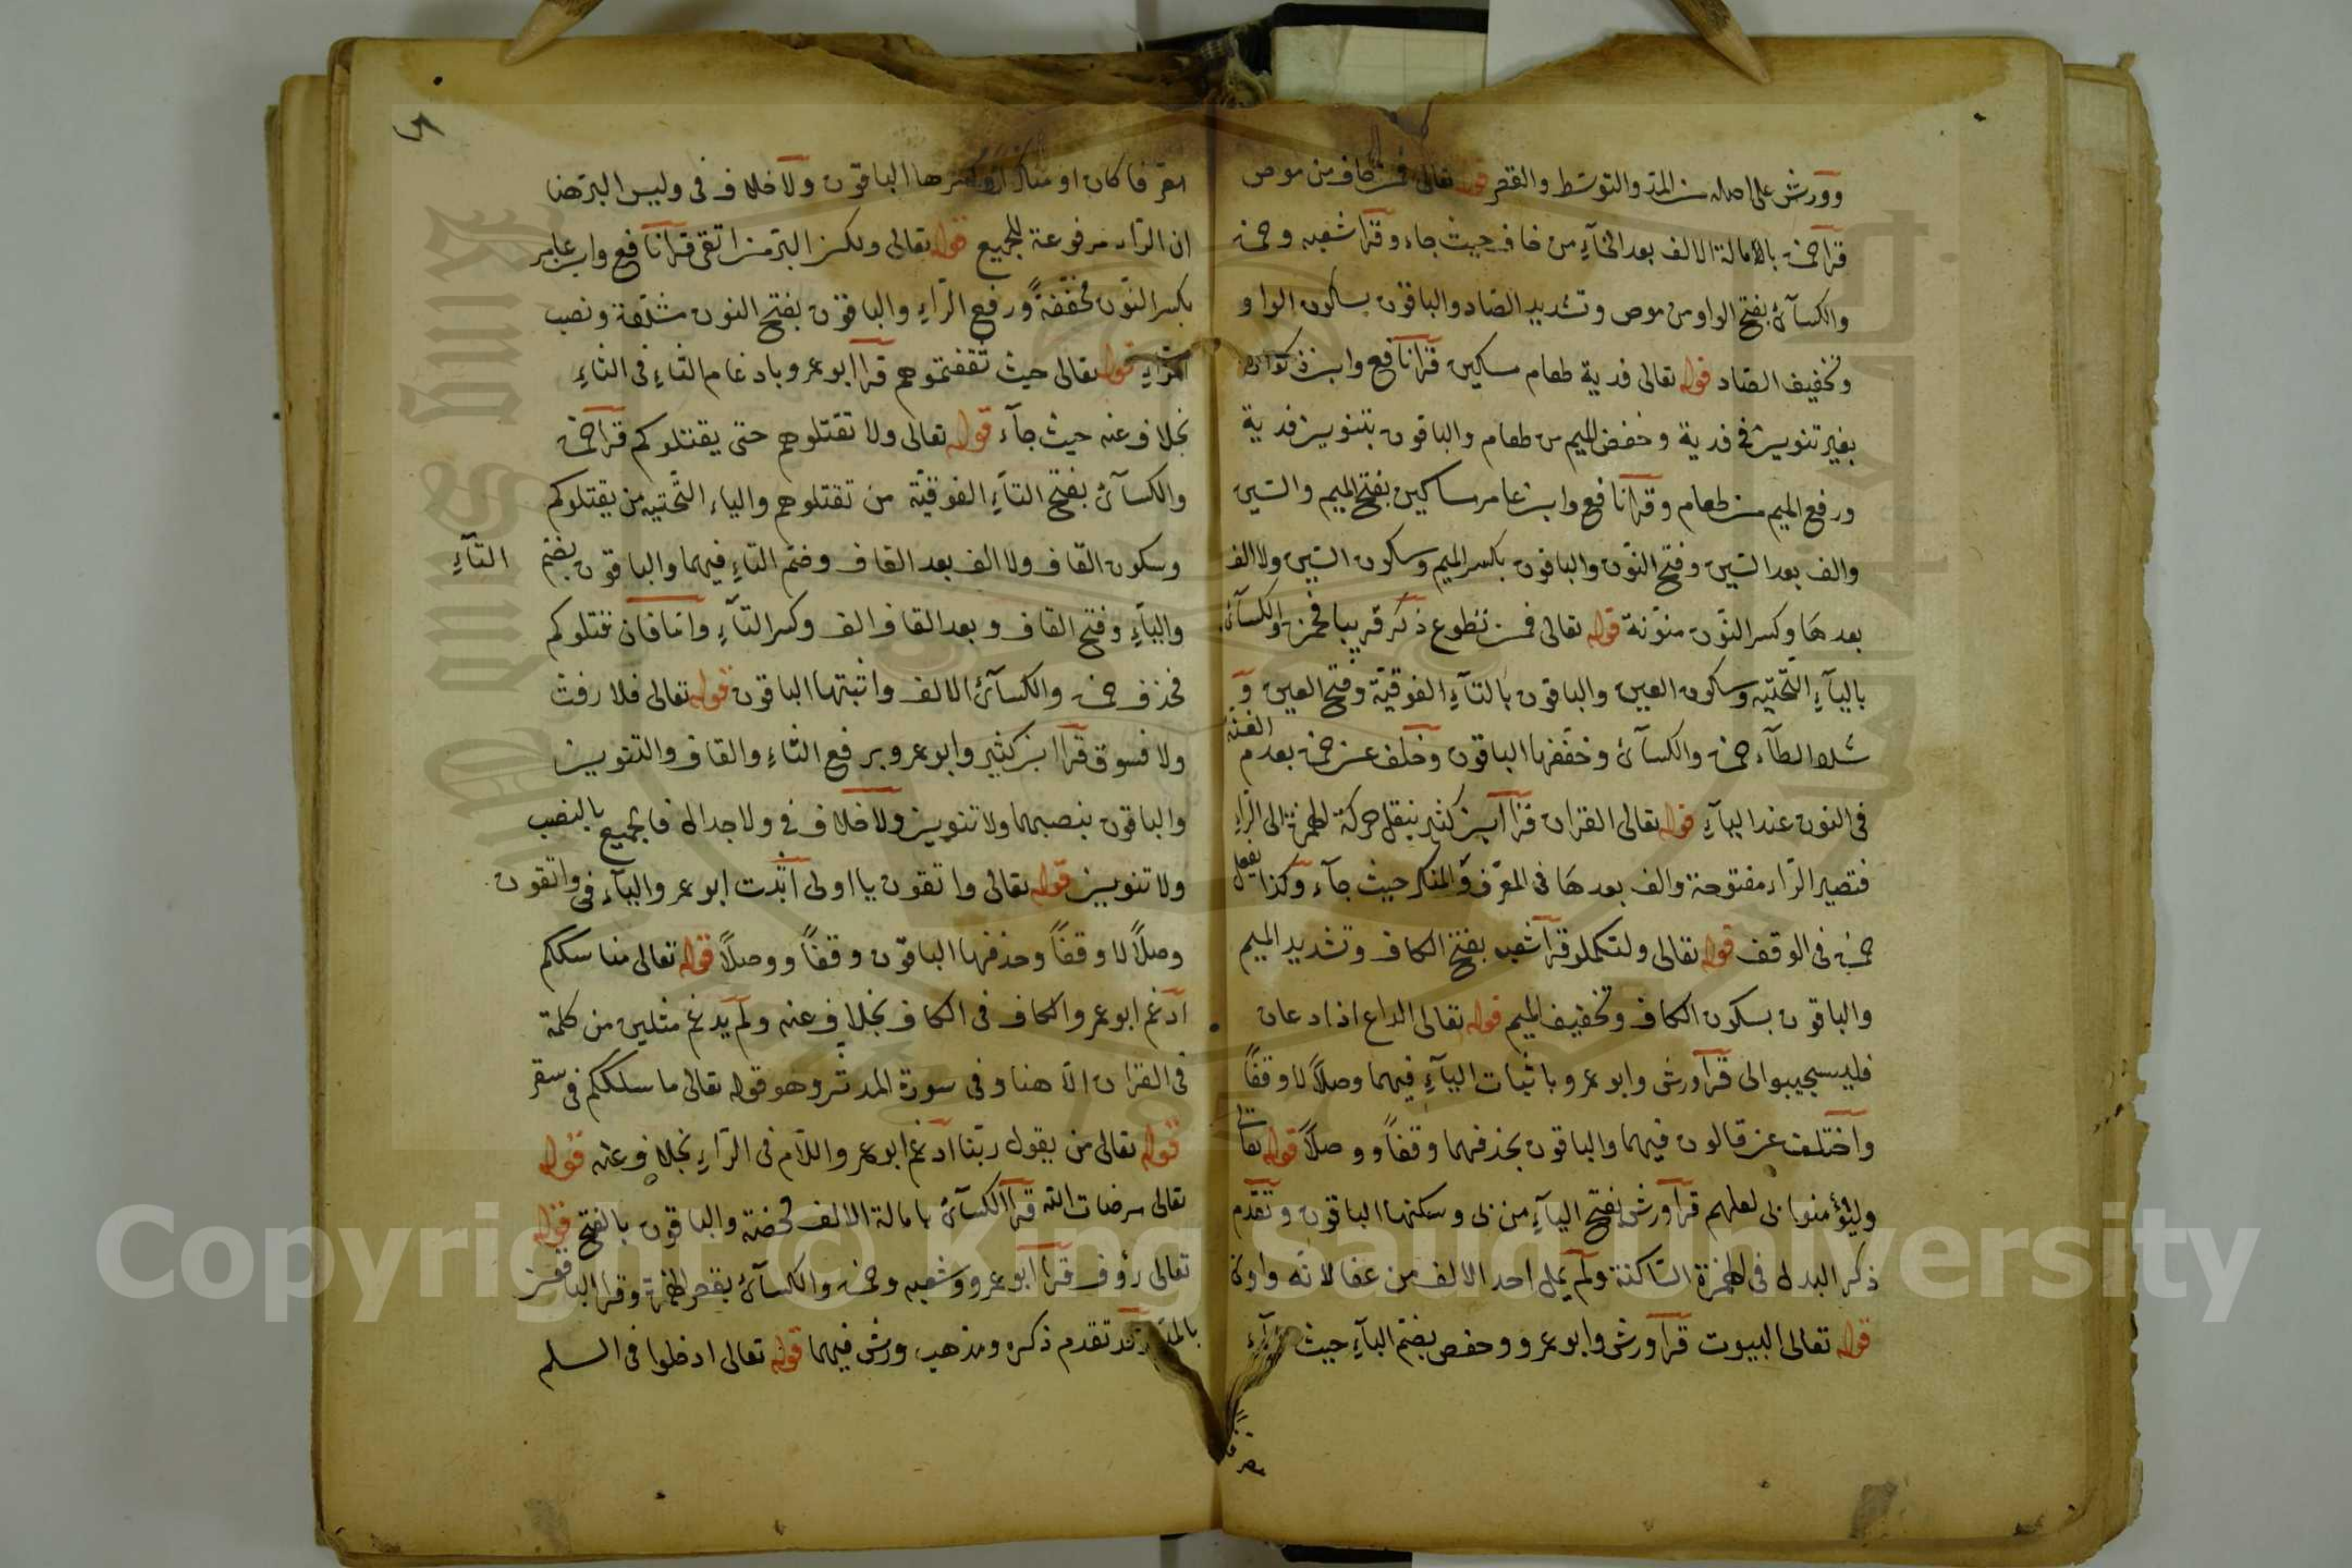 وورش على اصله من المد والتوسط والقصر قوله تعالى فمن خاف من موص
قرأ حمزة بالامالة الالف بعد الخآء من خاف حيث جاء وقرأ شعبه وحمزة
والكسآئ بفتح الواو من موص وتشديد الصاد والباقون بسكون الواو و
تخفيف الصاد قوله تعالى فدية طعام مسكين قرأ نافع وابن ذكوان
بغير تنوين فى فدية وخفض الميم من طعام والباقون بتنوين فدية
ورفع الميم من طعام وقرأ نافع وابن عامر مساكين بفتح الميم والسين
والف بعد السين وفتح النون والباقون بكسر الميم وسكون السين ولا الف
بعدها وكسر النون منونة قوله تعالى فمن تطوع ذكر قريبا فحمزة والكسآئ
باليآء التحتيه وسكون العين والباقون بالتآء الفوقية وفتح العين و
شدد الطآء حمزة والكسآئ وخففها الباقون وخلف عن حمزة بعدم الغنه
فى النون عند اليآء قوله تعالى القران قرأ ابن كثير بنقل حركة الهمزة الى الرآء
فتصير الراء مفتوحة والف بعدها فى المعرف والمنكر حيث جآء وكذا يفعل
حمزة فى الوقف قوله تعالى ولتكملوا قرأ شعبه بفتح الكاف وتشديد الميم
والباقون بسكون الكاف وتخفيف الميم قوله تعالى الداع اذا دعان
فليستجيبوا لى قرأ ورش وابو عمرو باثبات اليآء فيهما وصلاً لا وقفاً
واختلف عن قالون فيهما والباقون بحذفهما وقفاً ووصلاً قوله تعالى
وليؤمنوا بى لعلهم قرأ ورش بفتح اليآء من بى وسكنها الباقون وتقدم
ذكر البدل فى الهمزة الساكنة ولم يمل احد الالف من عفا لانه واوى
قوله تعالى البيوت قرأ ورش وابو عمرو وحفص بضم البآء حيث جآء
معرفا
معرفا كان او منكرا وكسرها الباقون ولا خلاف فى وليس البر هنا
ان الراء مرفوعة للجميع قوله تعالى ولكن البر من اتقى قرأ نافع وابن عامر
بكسر النون مخففةً ورفع الرآء والباقون بفتح النون مشددة ونصب
الرآء قوله تعالى حيث ثقفتموهم قرأ ابو عمرو بادغام الثاء فى الثاء
بخلاف عنه حيث جآء قوله تعالى ولا تقتلوهم حتى يقتلوكم قرأ حمزة
والكسآئ بفتح التآء الفوقية من تقتلوهم والياء التحتيه من يقتلوكم
وسكون القاف ولا الف بعد القاف وضم التاء فيهما والباقون بضم التآء
واليآء وفتح القاف وبعد القاف الف وكسر التآء واما فان قتلوكم
فحذف حمزة والكسآئ الالف واثبتها الباقون قوله تعالى فلا رفث
ولا فسوق قرأ ابن كثير وابو عمرو برفع الثاء والقاف والتنوين
والباقون بنصبهما ولا تنوين ولا خلاف فى ولا جدال فالجميع بالنصب
ولا تنوين قوله تعالى واتقون يا اولى اثبت ابو عمرو اليآء فى واتقون
وصلاً لا وقفاً وحذفها الباقون وقفاً ووصلاً قوله تعالى مناسككم
ادغم ابو عمرو الكاف فى الكاف بخلاف عنه ولم يدغم مثلين من كلمة
فى القران الا هنا وفى سورة المدثر وهو قوله تعالى ما سلككم فى سقر
قوله تعالى من يقول ربنا ادغم ابو عمرو اللام فى الرآء بخلاف عنه قوله
تعالى مرضات الله قرأ الكسآئ بامالة الالف محضة والباقون بالفتح قوله
تعالى رؤف قرأ ابو عمرو وشعبه وحمزة والكسآئ بقصر الهمزة وقرأ الباقون
بالمد وقد تقدم ذكره ومذهب ورش فيهما قوله تعالى ادخلوا فى السلم
Copyright © King Saud University